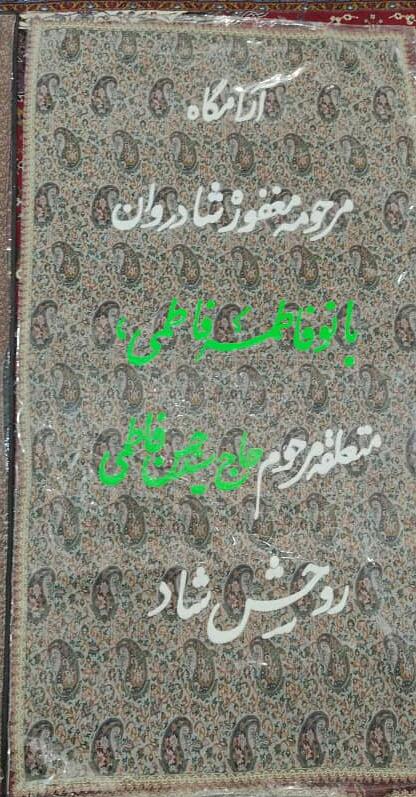 آرامگاه
مرحومه مغفوره شادروان
بانو فاطمه فاطمی
متعلقه مرحوم حاج سید حسن فاطمی
روحش شاد